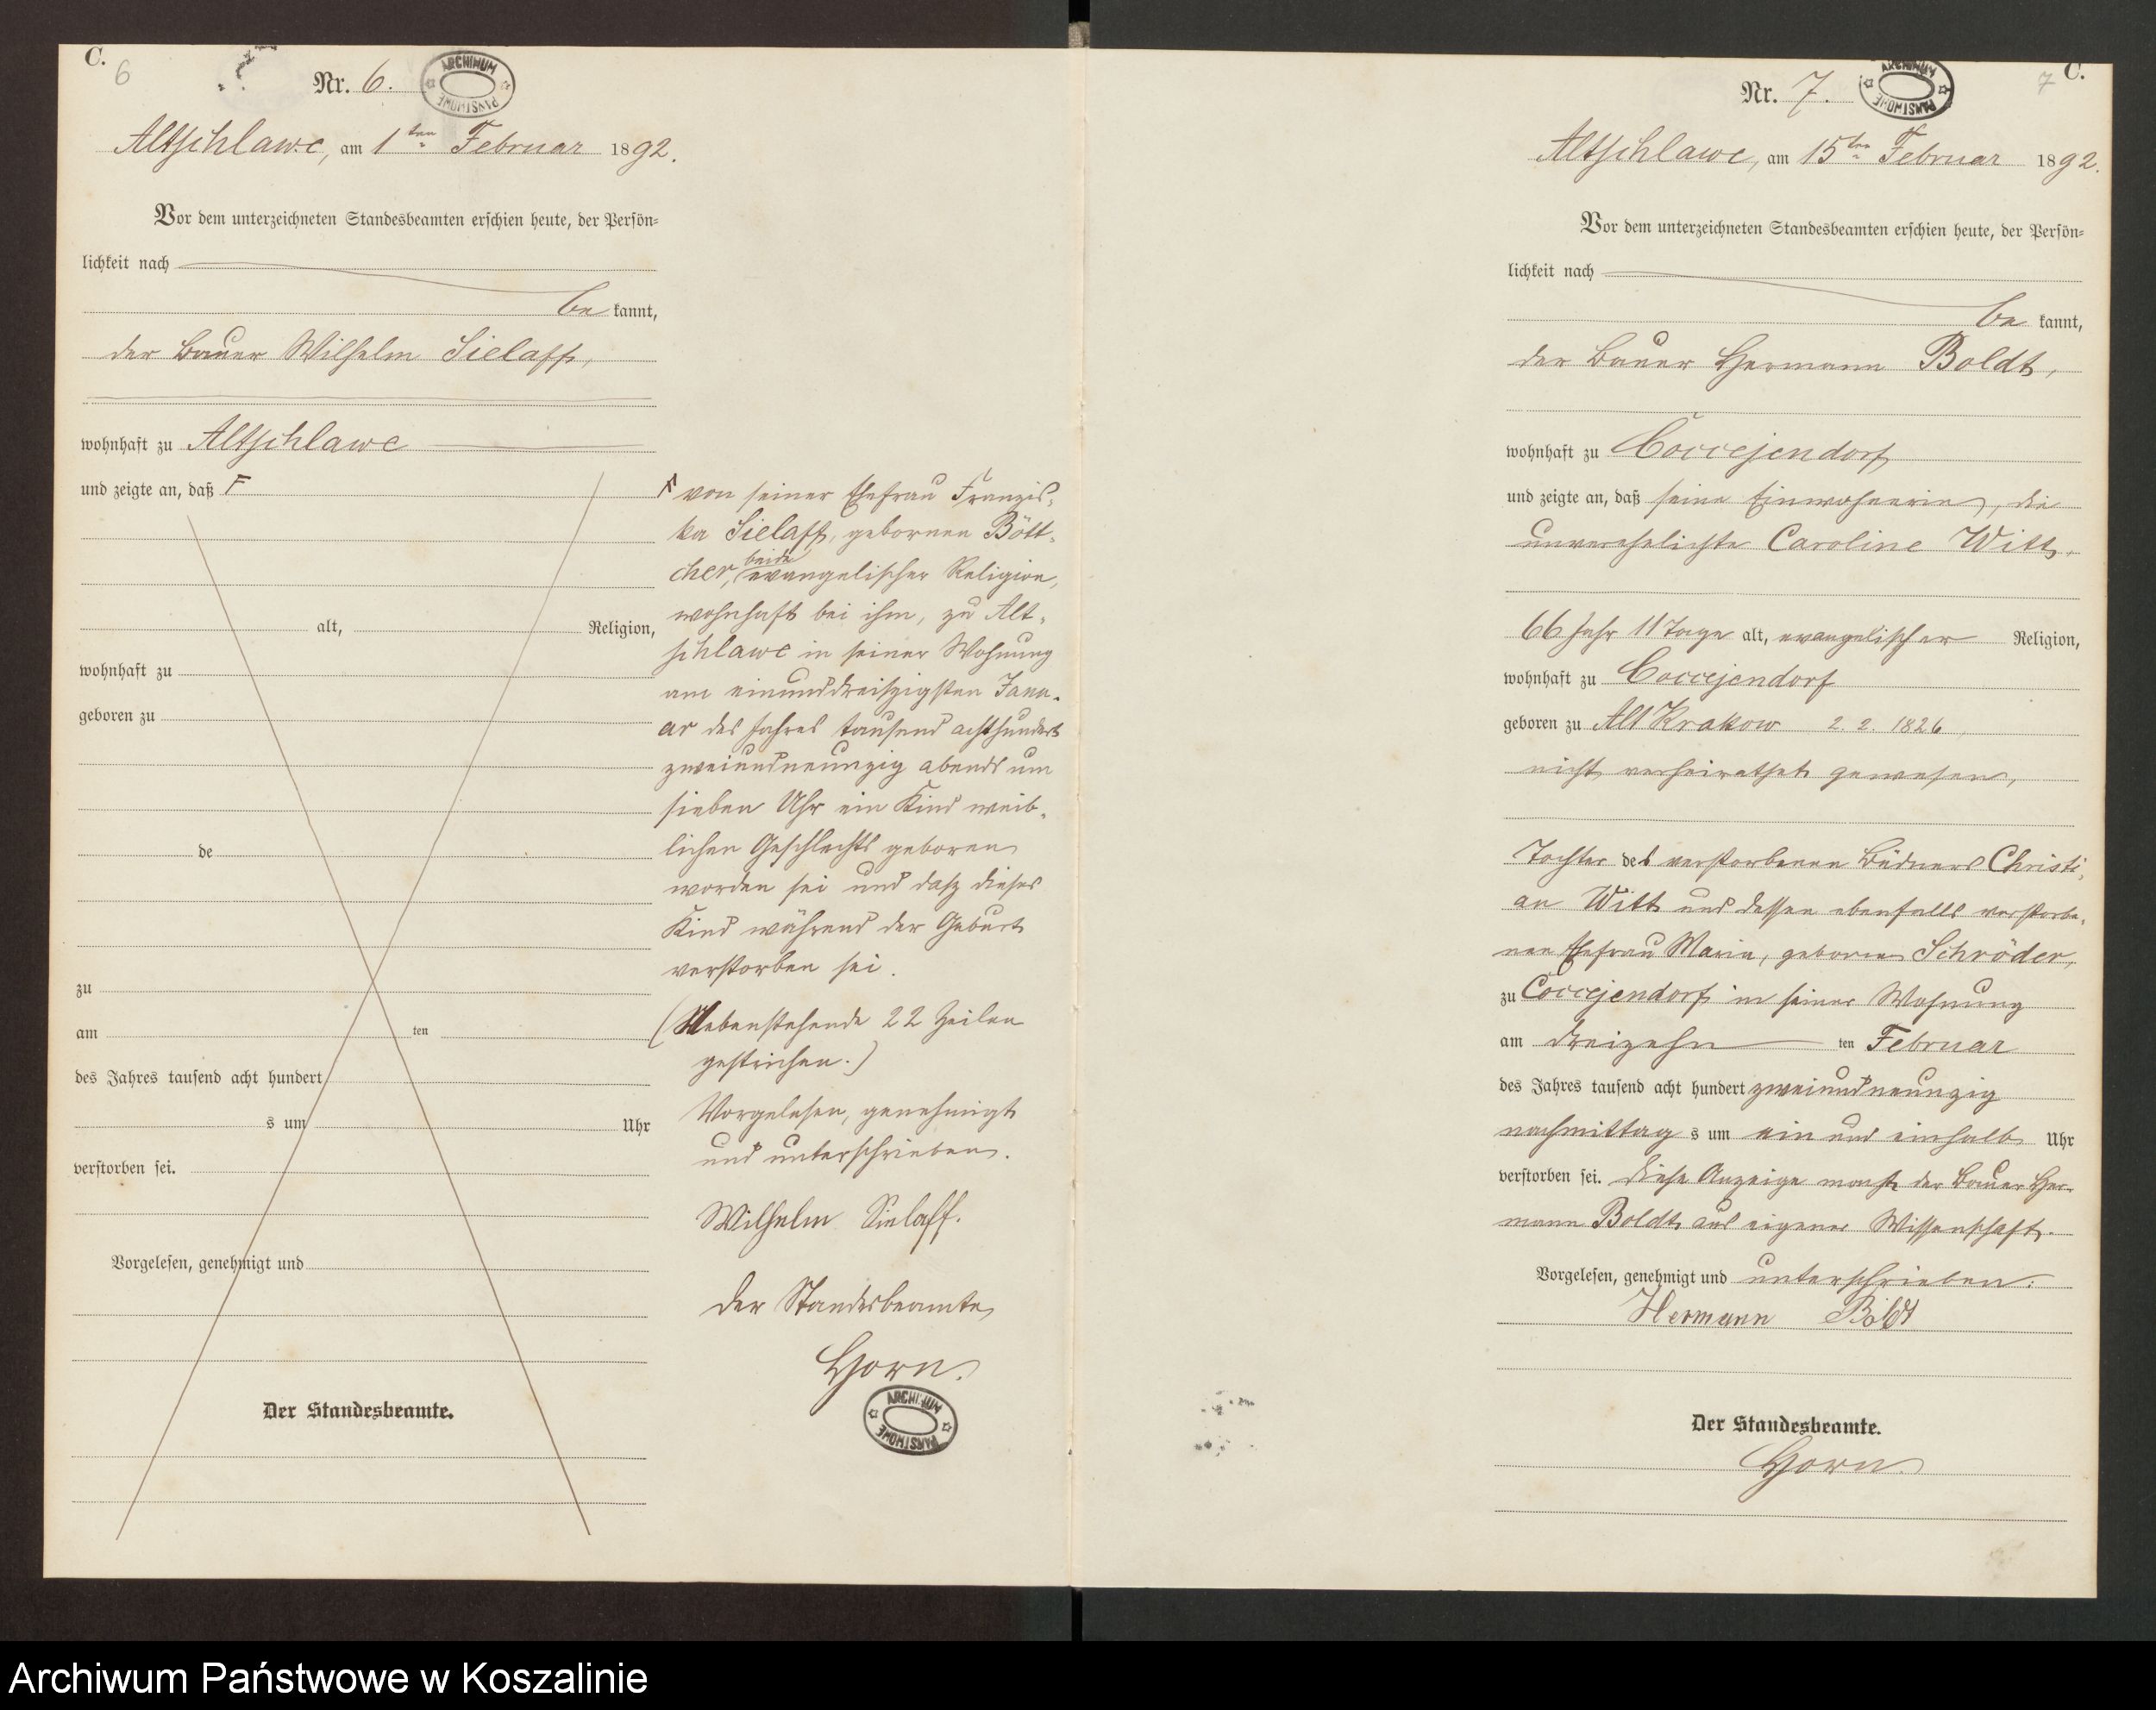 C.
6
Nr. 6.
ARCHIWUM PAŃSTWOWE
Altschlawe, am 1ten Februar 1892.
Vor dem unterzeichneten Standesbeamten erschien heute, der Persön-
lichkeit nach
be kannt,
der Bauer Wilhelm Sielaff,
wohnhaft zu Altschlawe
und zeigte an, daß F
alt, Religion,
wohnhaft zu
geboren zu
de
zu
am ten
des Jahres tausend acht hundert
s um Uhr
verstorben sei.
Vorgelesen, genehmigt und
Der Standesbeamte.
F von seiner Ehefrau Franzis-
ka Sielaff, gebornen Bött-
cher, beide evangelischer Religion,
wohnhaft bei ihm, zu Alt-
schlawe in seiner Wohnung
am einunddreiszigsten Janu-
ar des Jahres tausend achthundert
zweiundneunzig abends um
sieben Uhr ein Kind weib-
lichen Geschlechts geboren
worden sei und dasz dieses
Kind während der Geburt
verstorben sei.
(Nebenstehende 22 Zeilen
gestrichen.)
Vorgelesen, genehmigt
und unterschrieben.
Wilhelm Sielaff.
Der Standesbeamte
Horn.
ARCHIWUM PAŃSTWOWE
7 C.
Nr. 7.
ARCHIWUM PAŃSTWOWE
Altschlawe, am 15ten Februar 1892.
Vor dem unterzeichneten Standesbeamten erschien heute, der Persön-
lichkeit nach
be kannt,
der Bauer Hermann Boldt,
wohnhaft zu Coccejendorf
und zeigte an, daß seine Einwohnerin, die
unverehelichte Caroline Witt,
66 Jahr 11 Tage alt, evangelischer Religion,
wohnhaft zu Coccejendorf
geboren zu Alt Krakow 2. 2. 1826,
nicht verheirathet gewesen,
Tochter des verstorbenen Büdners Christi-
an Witt und dessen ebenfalls verstorbe-
nen Ehefrau Maria, geborne Schröder,
zu Coccejendorf in seiner Wohnung
am dreizehn ten Februar
des Jahres tausend acht hundert zweiundneunzig
nachmittag s um ein und einhalb Uhr
verstorben sei. Diese Anzeige macht der Bauer Her-
mann Boldt aus eigener Wissenschaft.
Vorgelesen, genehmigt und unterschrieben.
Hermann Boldt
Der Standesbeamte.
Horn.
Archiwum Państwowe w Koszalinie